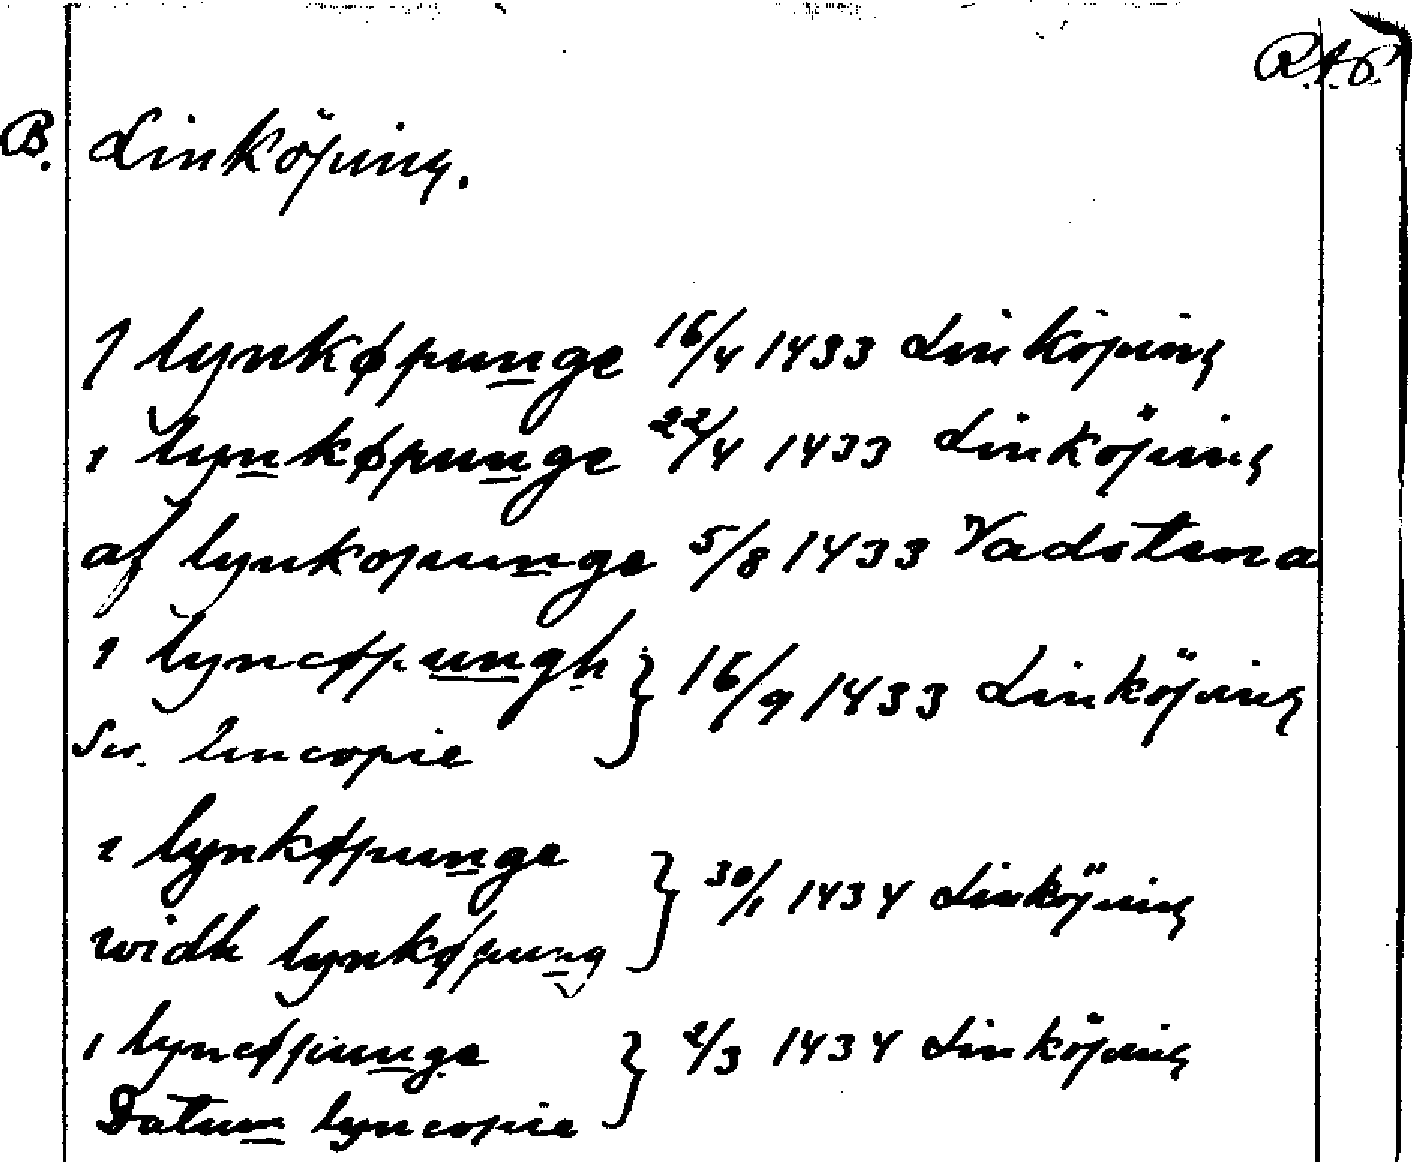 R.A.P.
B. Linköping.
J lynkøpunge 16/4 1433 Linköping
ı lynkøpunge 22/4 1433 Linköping
af lynkopunge 5/8 1433 Vadstena
ı lyncøpungh } 16/9 1433 Linköping
Scr. lincopie
ı lynkøpunge } 30/1 1434 Linköping
widh lynkøpung
ı lyncøpunge } 2/3 1434 Linköping
Datum lyncopie